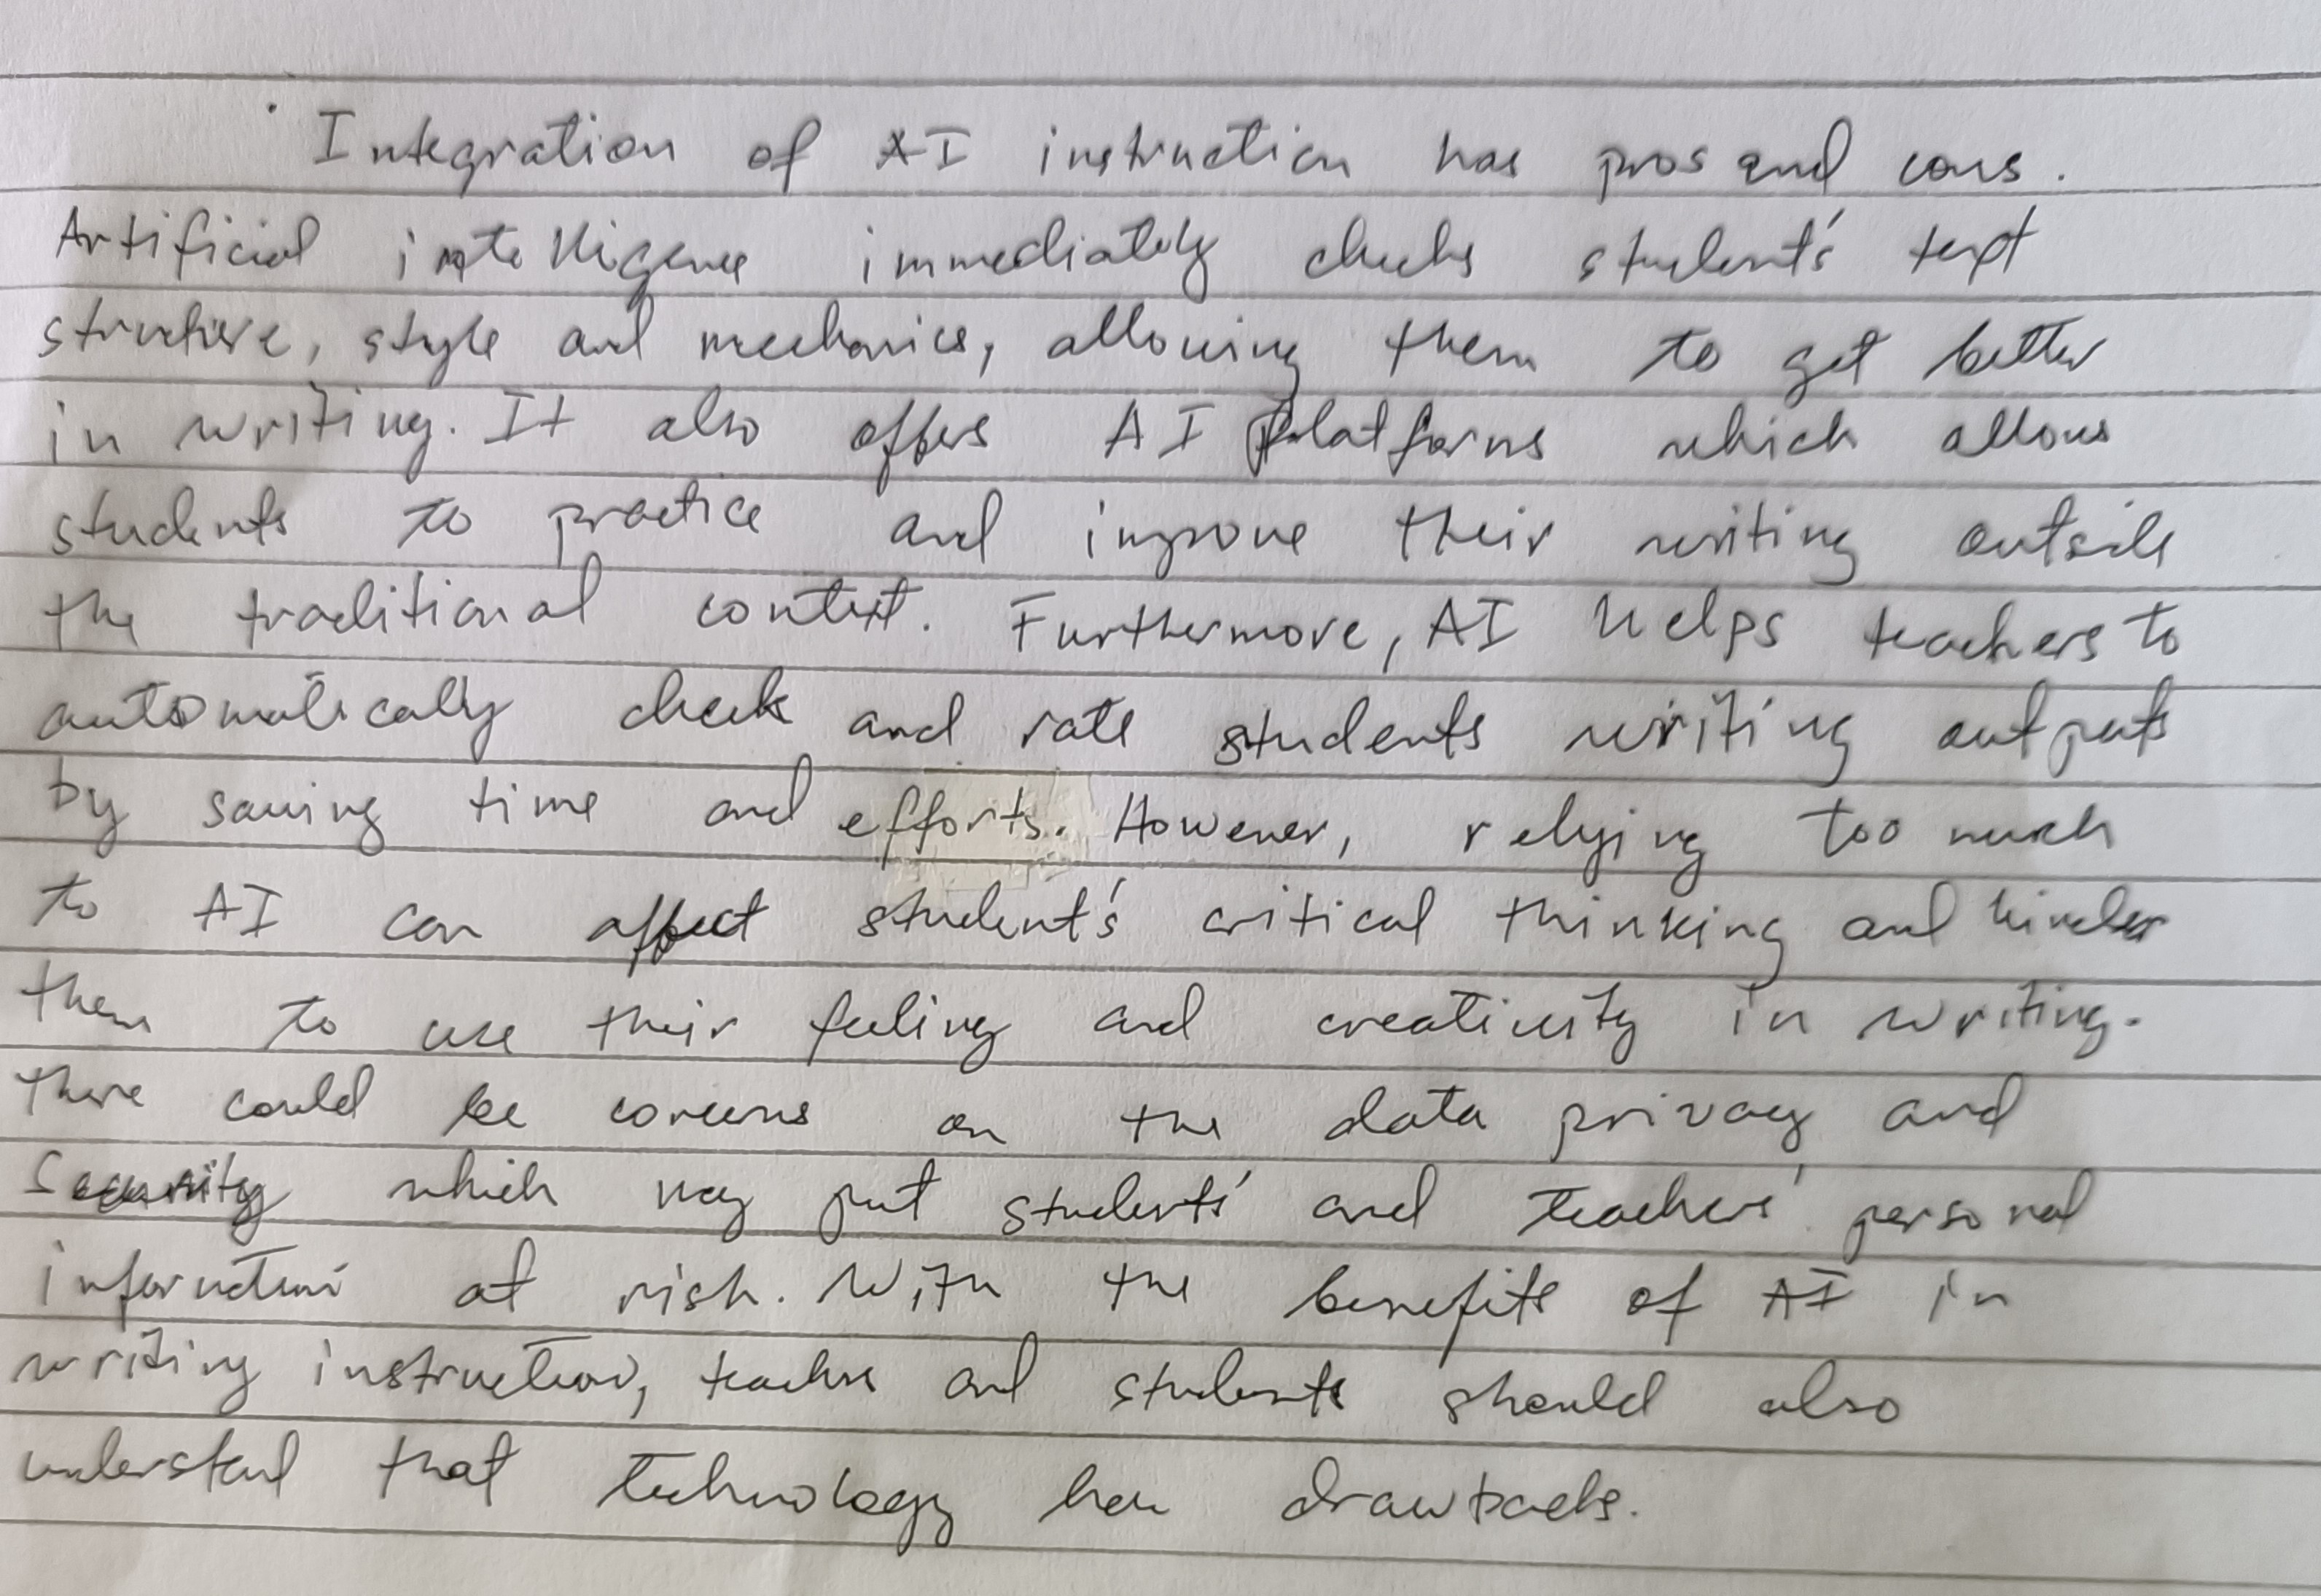 Integration of AI instruction has pros and cons.
Artificial intelligence immediately checks student's text
structure, style and mechanics, allowing them to get better
in writing. It also offers AI platforms which allows
students to practice and improve their writing outside
the traditional context. Furthermore, AI helps teachers to
automatically check and rate students writing outputs
by saving time and efforts. However, relying too much
to AI can affect student's critical thinking and hinder
them to use their feeling and creativity in writing.
There could be concerns on the data privacy and
security which may put students' and teachers' personal
information at risk. With the benefits of AI in
writing instruction, teachers and students should also
understand that technology has drawbacks.